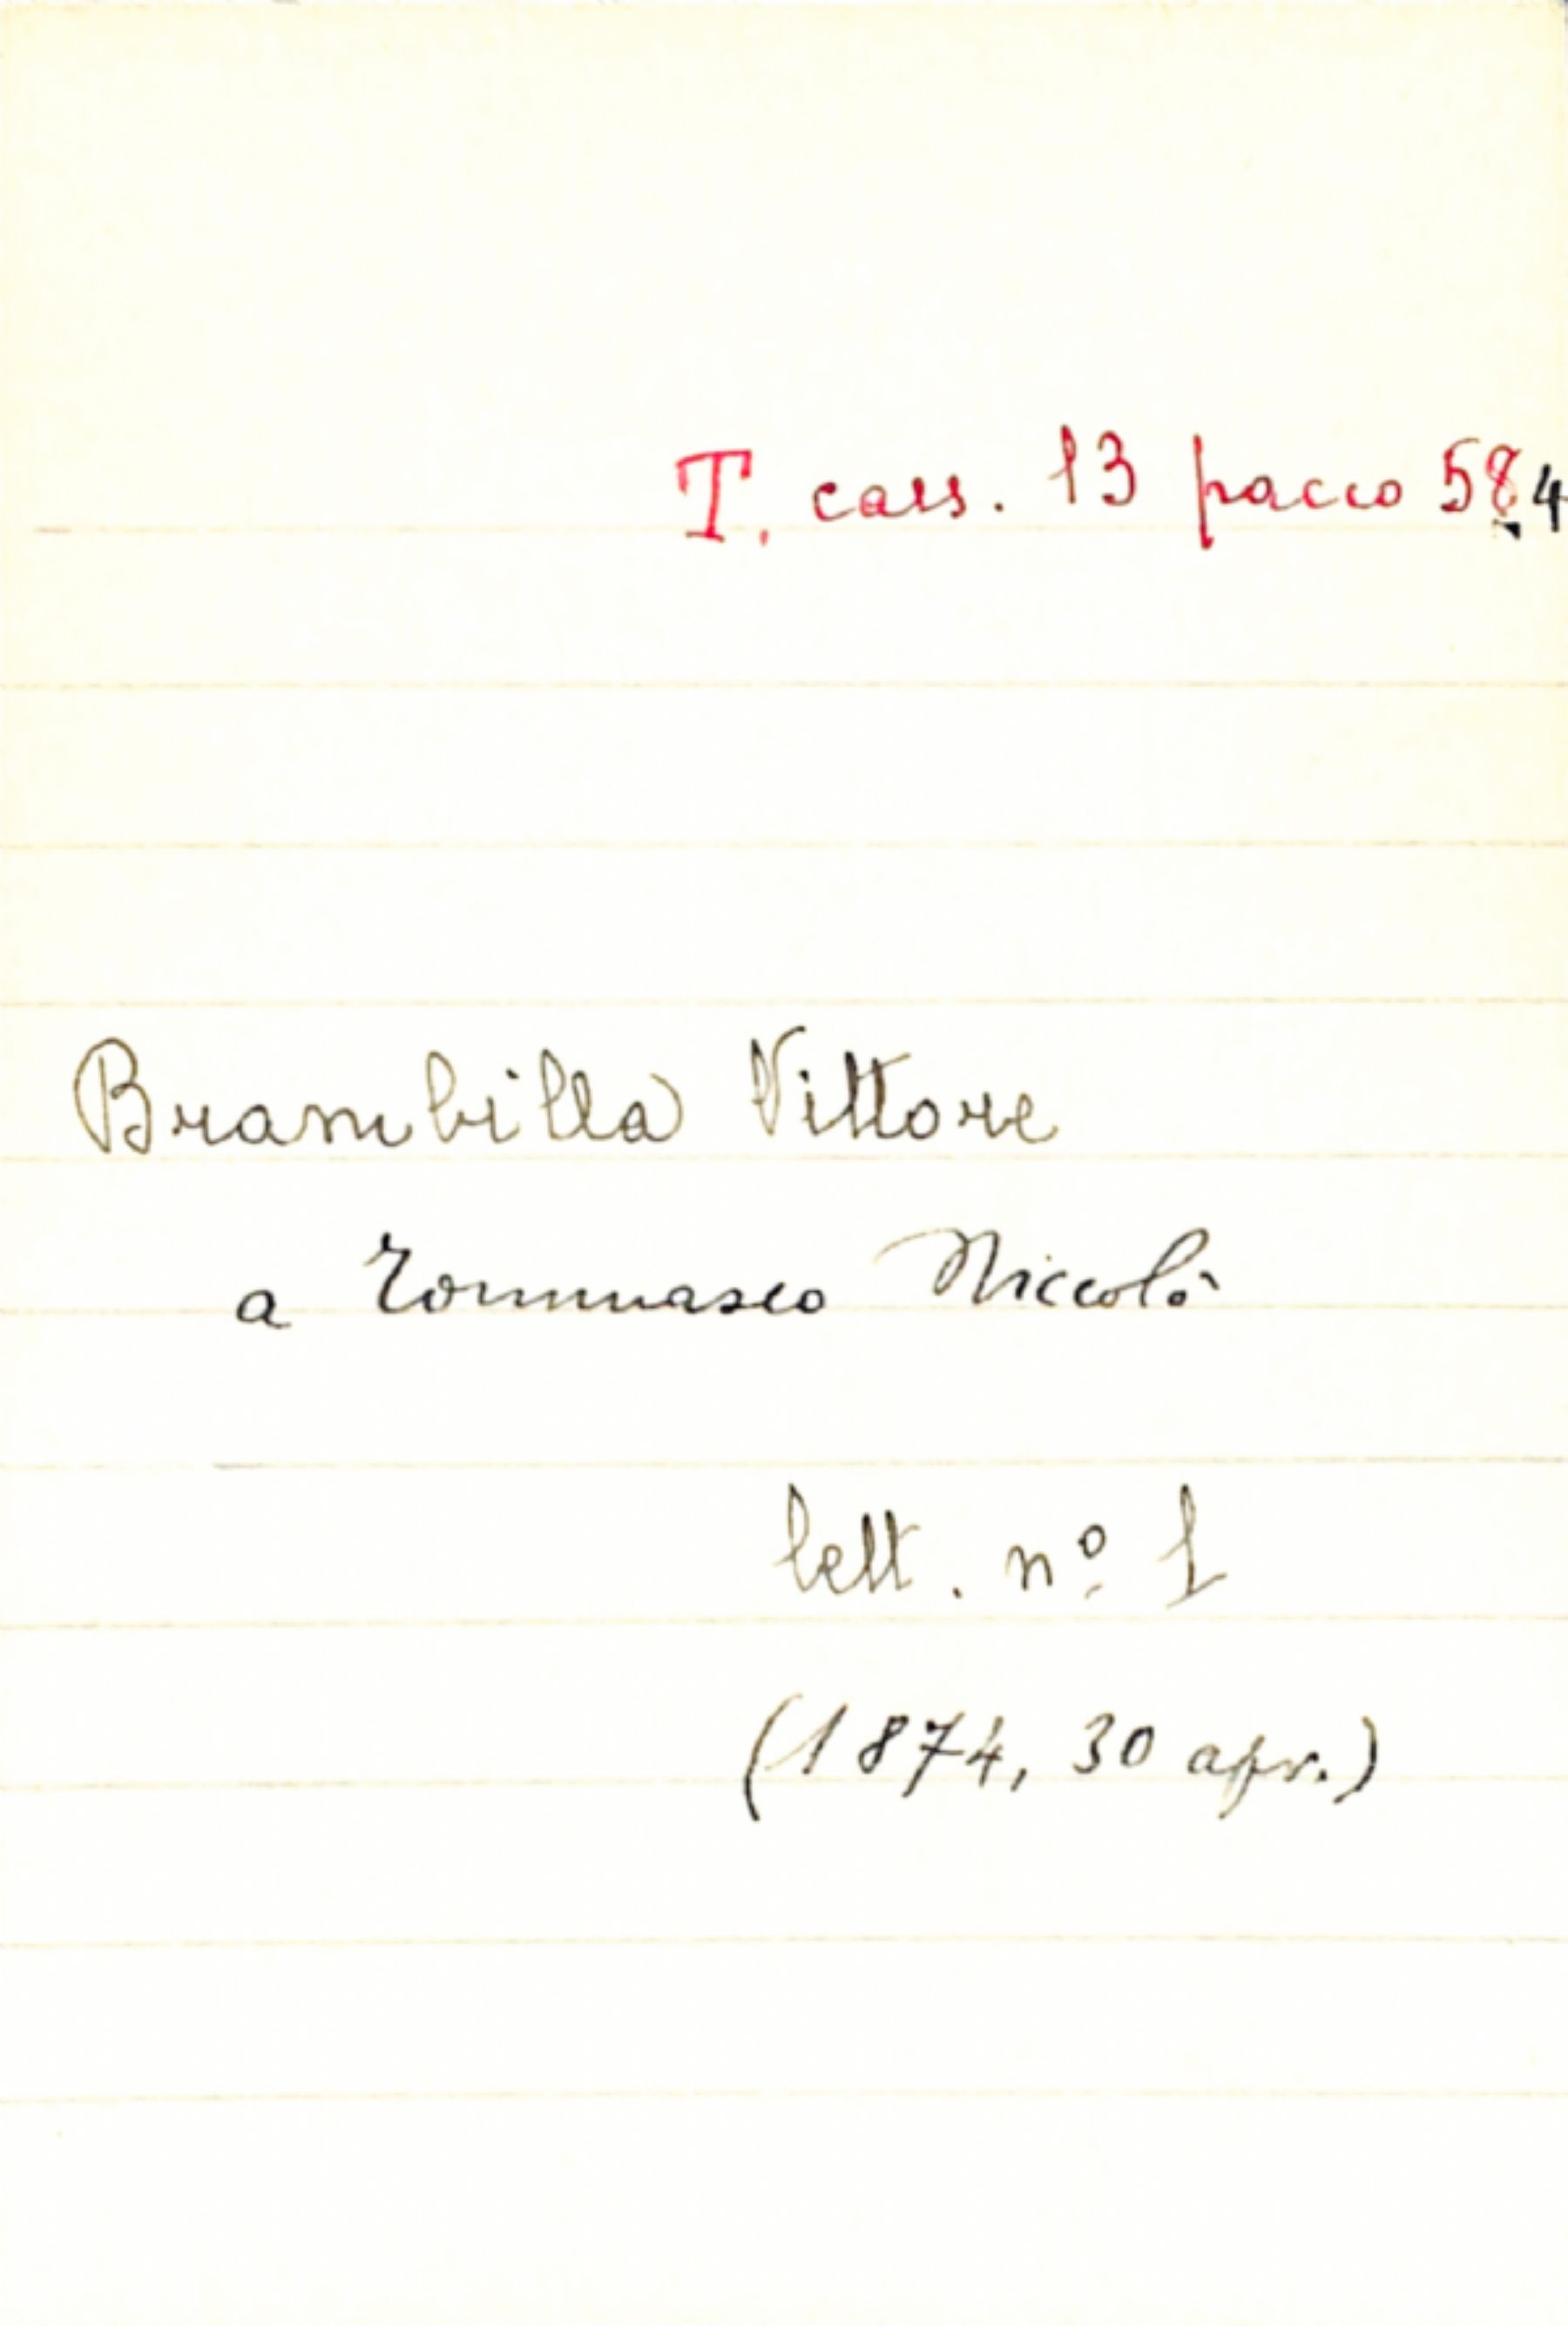 T. cass. 13 pacco 58,4
Brambilla Vittore
a Tommaseo Niccolò
lett. nº 1
(1874, 30 apr.)